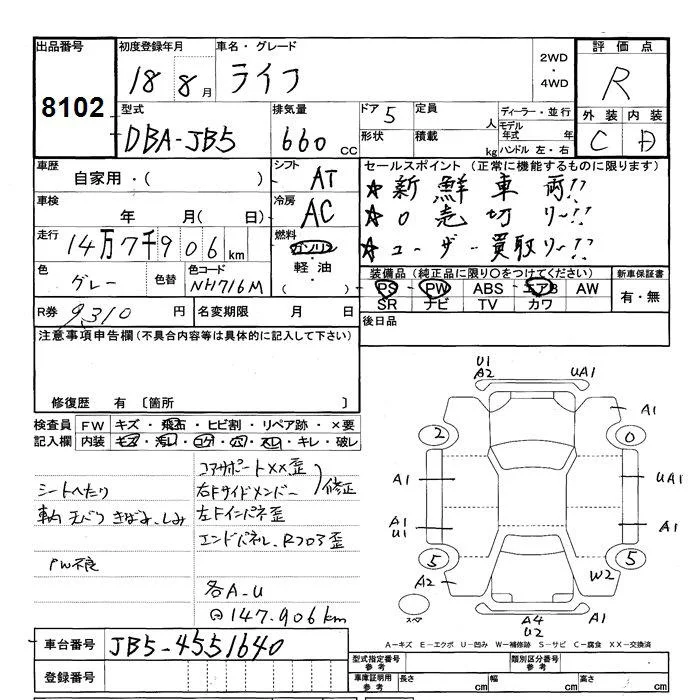 出品番号 初度登録年月 車名・グレード 評価点
8102 18 8月 ライフ 2WD・4WD R
型式 排気量 ドア 5 定員 人 ディーラー・並行 外装 内装
DBA-JB5 660 CC 形状 積載 kg モデル年式 年 ハンドル 左・右 C D
車歴 シフト セールスポイント (正常に機能するものに限ります)
自家用・( ) AT ★新鮮車両!!
車検 冷房 ★0売切り〜!!
年 月( 日) AC ★ユーザー買取り〜!!
走行 14万7千906km 燃料 ガソリン・軽油・( )
色 グレー 色替 色コード NH716M
装備品 (純正品に限り○をつけてください) 新車保証書
PS PW ABS エアB AW 有・無
SR ナビ TV カワ
R券 9310円 名変期限 月 日 後日品
注意事項申告欄(不具合内容等は具体的に記入して下さい)
修復歴 有 〔箇所 〕
検査員記入欄 FW キズ・飛石・ヒビ割・リペア跡・×要
内装 キズ・汚レ・コゲ・穴・スレ・キレ・破レ
コアサポートXX歪
シートへたり 右Fサイドメンバー 修正
左Fインパネ歪
エンドパネル、Rフロア歪
PW不良
各A-U
147,906km
U1
A2 UA1
A1
2 0
A1 A1
A1
U1 A1
5 5
A2 W2
スペア A4
U2 A1
A-キズ E-エクボ U-凹み W-補修跡 S-サビ C-腐食 XX-交換済
車台番号 JB5-4551640
登録番号
型式指定番号 参考 類別区分番号 参考
車庫証明用 参考 長さ cm 幅 cm 高さ cm